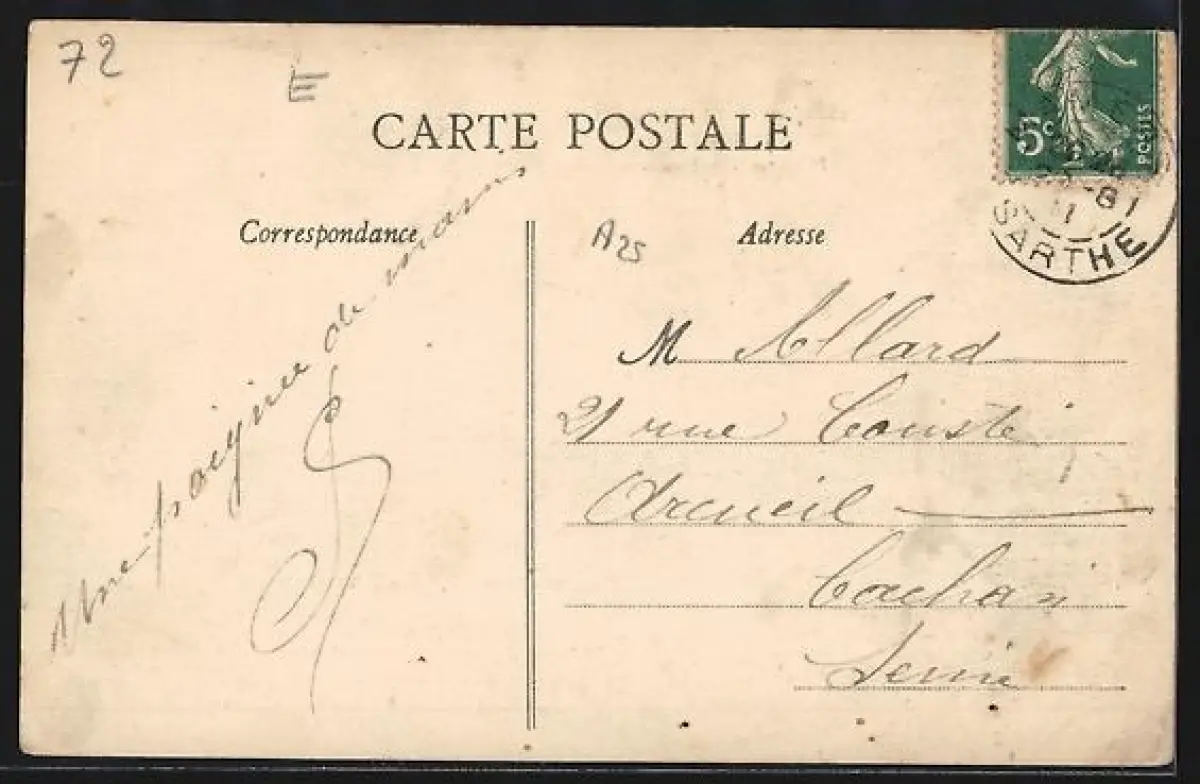 72
E
CARTE POSTALE
5c
POSTES
SARTHE
Correspondance
A25
Adresse
Une poignée de mains
M Allard
21 rue
Arcueil
Cachan
Seine